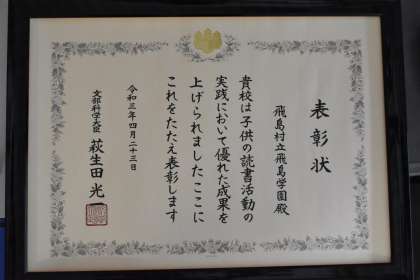 表彰状
飛島村立飛島学園殿
貴校は子供の読書活動の
実践において優れた成果を
上げられましたここに
これをたたえ表彰します
令和三年四月二十三日
文部科学大臣 萩生田光一